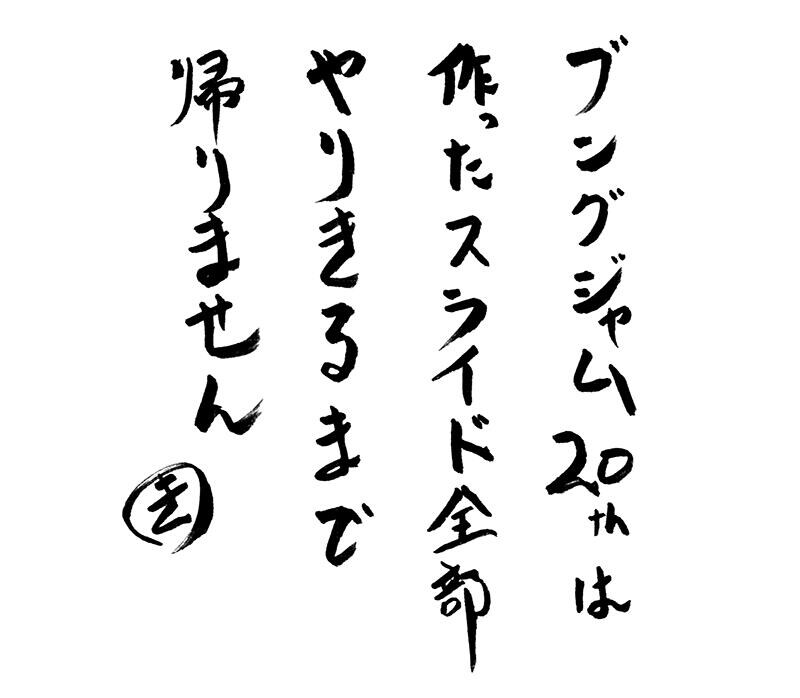 ブングジャム20thは
作ったスライド全部
やりきるまで
帰りません
き